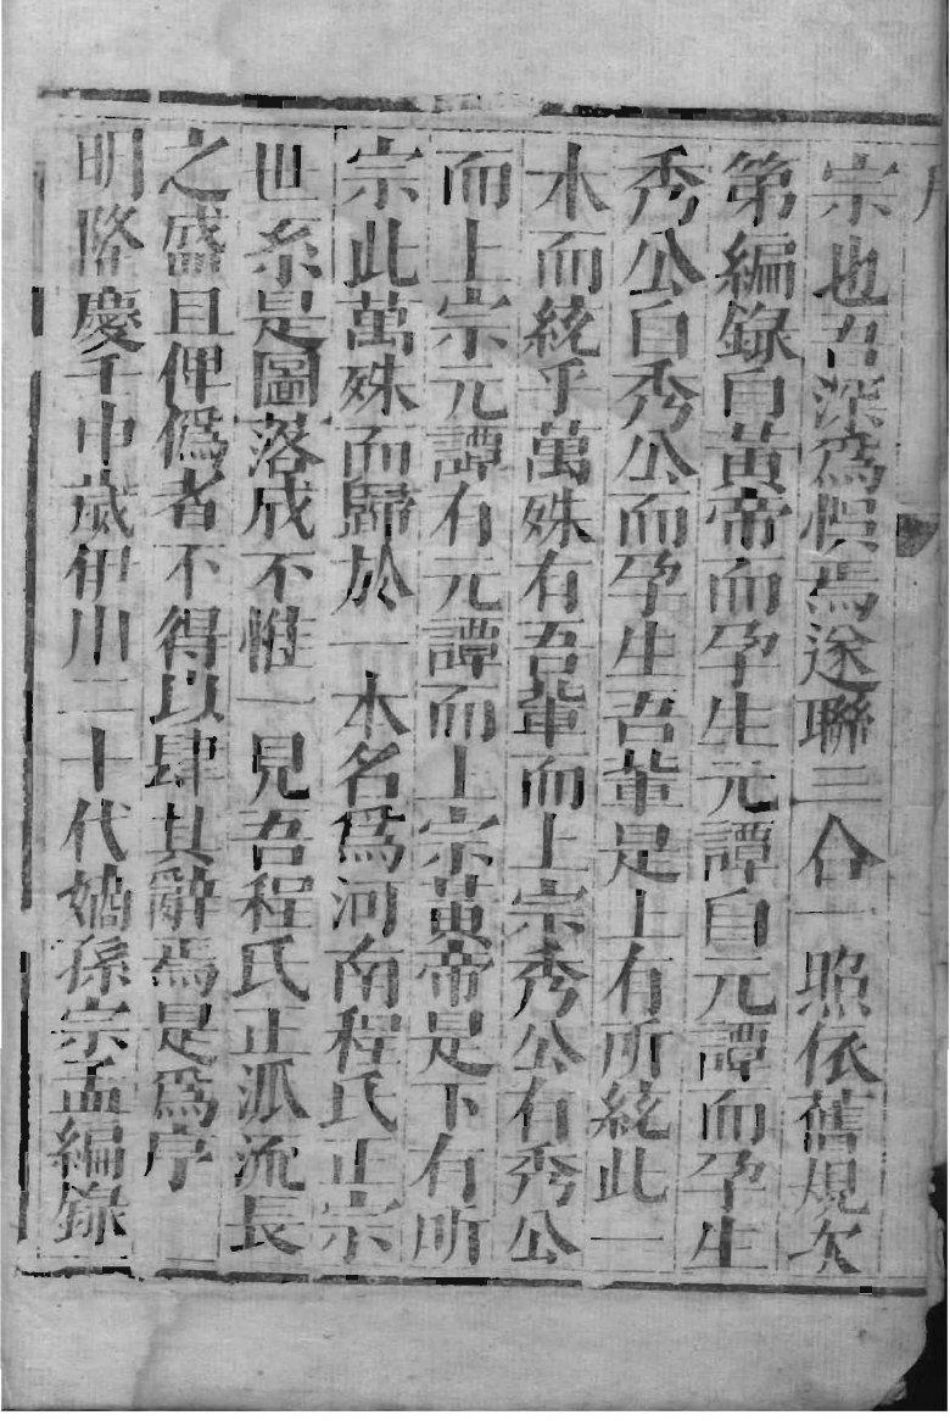 宗也吾深為懼焉遂聯三合一照依舊規次
第編錄自黃帝而孕生元譚自元譚而孕生
秀公自秀公而孕生吾輩是上有所統此一
木而統乎萬殊有吾輩而上宗秀公有秀公
而上宗元譚有元譚而上宗黃帝是下有所
宗此萬殊而歸於一木名為河南程氏正宗
世系是圖落成不惟一見吾程氏正派流長
之盛且俾偽者不得以肆其辭焉是為序
明隆慶壬申歲伊川二十代嫡孫宗孟編錄